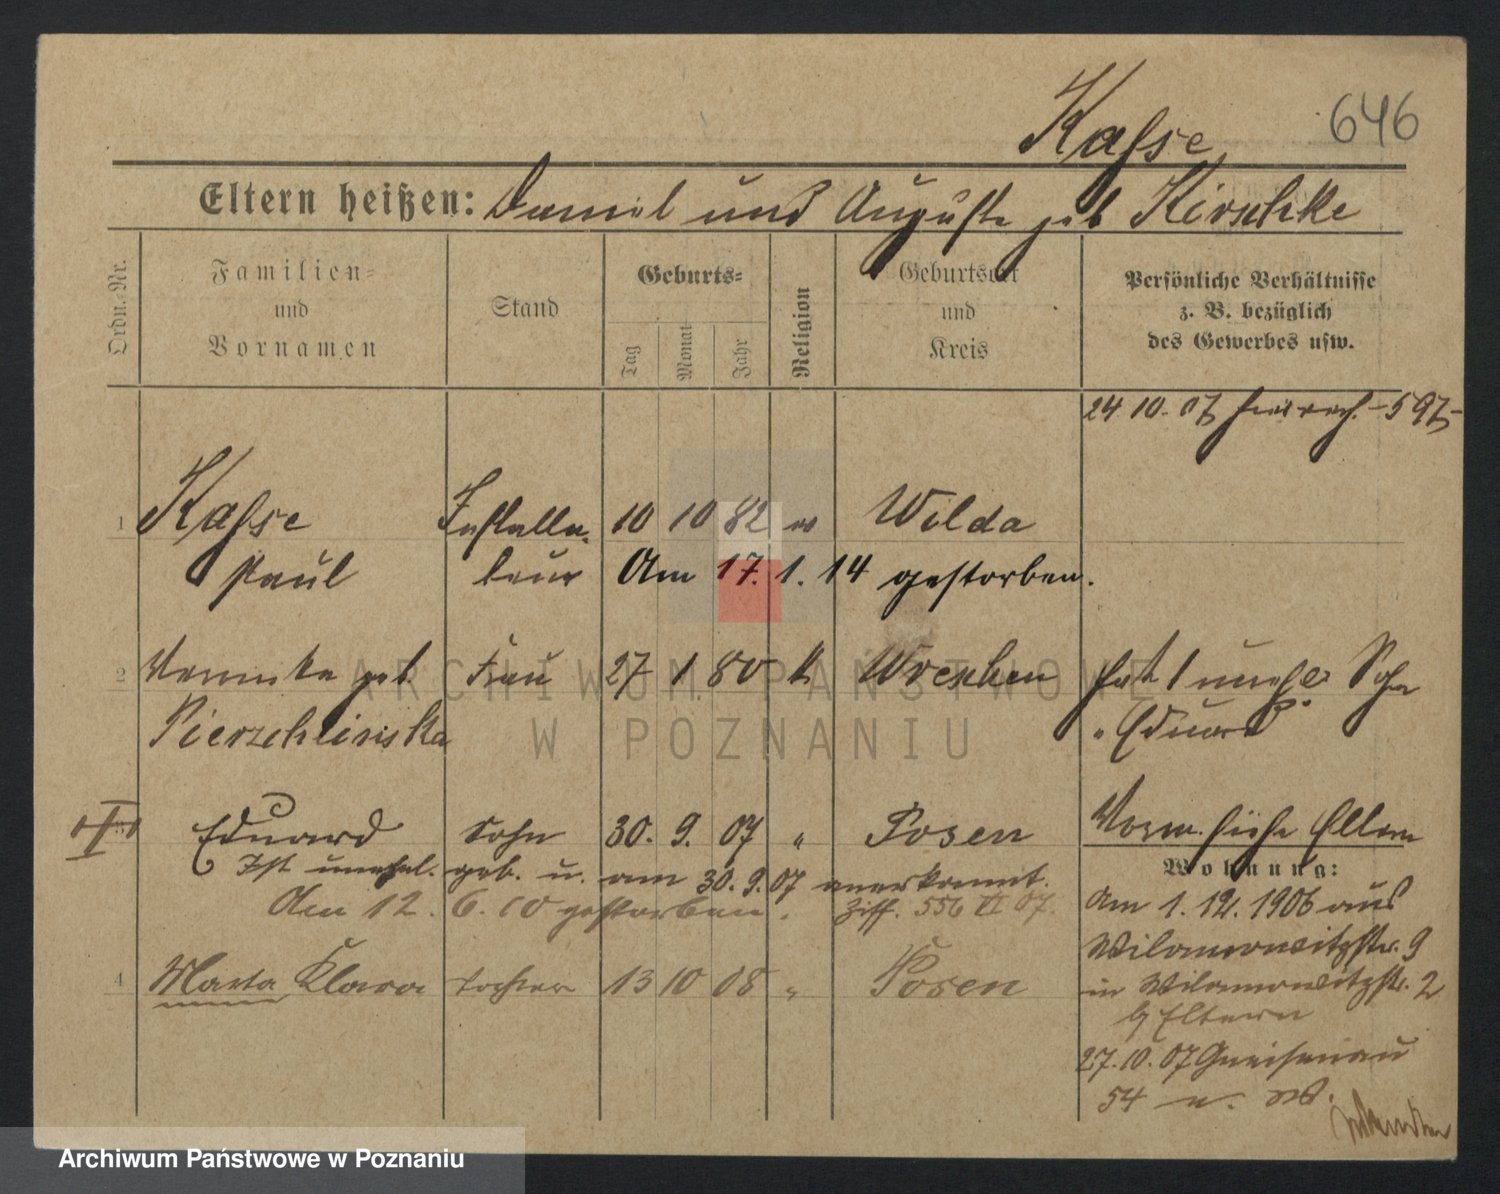 646
Kasse
Eltern heißen: Daniel und Auguste geb Kirschke
Ordn.-Nr.
Familien-
und
Vornamen
Stand
Geburts-
Tag
Monat
Jahr
Religion
Geburtsort
und
Kreis
Persönliche Verhältnisse
z. B. bezüglich
des Gewerbes usw.
24 10. 07 597
1 Kasse Installa- 10 10 82 Wilda
Paul teur Am 17. 1. 14 gestorben.
2 geb Frau 27 1 80 k Wreschen hat 1 unehel Sohn
Pierzchlinska "Eduard"
3 Eduard Sohn 30. 9. 07 " Posen Vorm. siehe Eltern
Ist unehel. geb. u. am 30. 9. 07 anerkannt.
Am 12. 6. 10 gestorben. Ziff. 556 VI 07.
4 Marta Klara Tochter 13 10 08 " Posen
Wohnung:
Am 1. 12. 1906 aus
Wilamowitzstr. 9
in Wilamowitzstr. 2
b/ Eltern
27. 10. 07 Gneisenau
54
ARCHIWUM PAŃSTWOWE
W POZNANIU
Archiwum Państwowe w Poznaniu